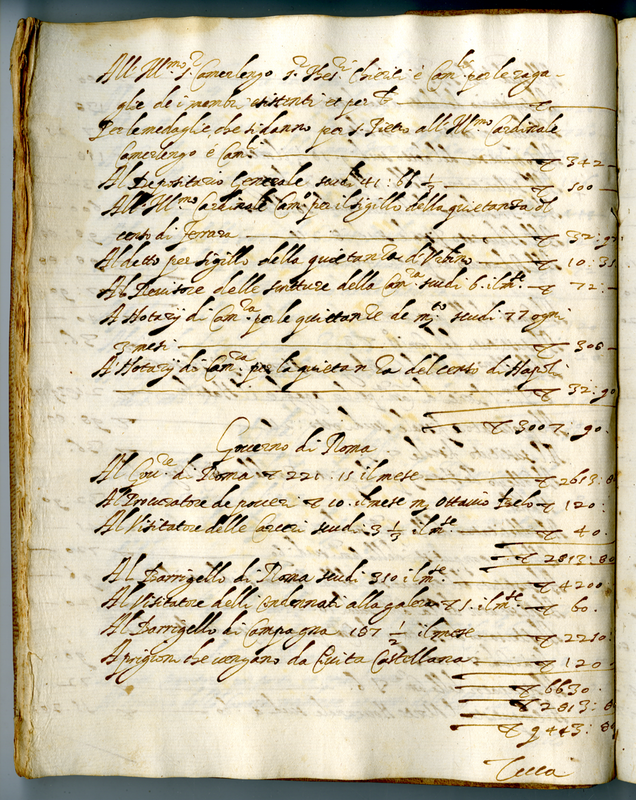 All Ill.mo S.r Camerlengo S.ri Thes.re Chierici è Cam.le per le rega-
glie de i membri esistenti et per
Per le medaglie che si danno per S. Pietro all Ill.mo Cardinale
Camerlengo è Cam.
Al Depositario Generale scudi 41: 66 2/3 — 500
All Ill.mo Cardinale Cam.o per il sigillo della quietanza del
censo di Ferrara — 32: 9
Al detto per sigillo della quietanza d'Urbino — 10: 3
Al Revisore delle scritture della Cam.ra scudi 6. il m.se — 72: —
A Notarij di Cam.ra per le quietanze de scudi 77 ogni
3 mesi — 306 —
A Notarij di Cam.ra per la quietanza del censo di Napoli
— 32: 90
3007. 90.
Governo di Roma
Al Gov.re di Roma 221: 15 il mese — 2613: 8
Al Procuratore de poveri 10. il mese m. Ottavio — 120:
Al Visitatore delle Carceri scudi 3 1/3 il m.se — 40.
2813: 80
Al Barrigello di Roma scudi 350 il m.se — 4200:
Al Visitatore delli condennati alla galera 5. il m.se — 60.
Al Barrigello di Campagna 187 1/2 il mese — 2250:
A prigioni che vengano da Civita Castellana — 120
6630.
2813: 8
9443: 8
Zecca